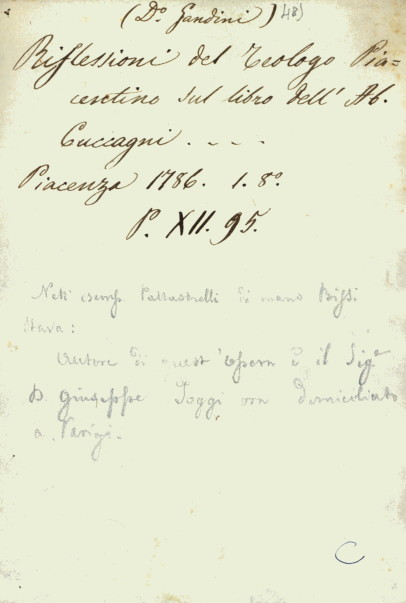 (Dº. Gandini) 48)
Riflessioni del Teologo Pia=
centino sul libro dell' Ab.
Cuccagni . - - -
Piacenza 1786. 1. 8º.
P. XII. 95.
Nell' esemp. Pallastrelli di mano Bissi
stava:
Autore di quest'opera è il Sigʳ
D. Giuseppe Poggi ora domiciliato
a Parigi.
C